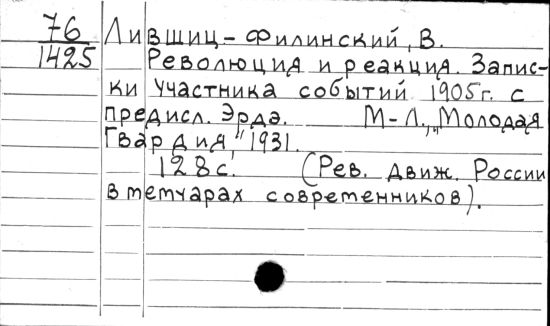 76 Лившиц-Филинский, В.
1425 Революция и реакция. Запис-
ки участника событий 1905г. с
предисл. Эрдэ. М-Л., „Молодая
Гвардия", 1931.
128с. (Рев. движ. России
в метчарах современников).